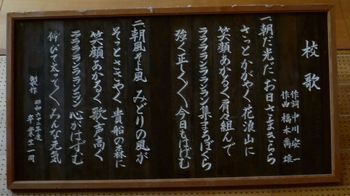 校歌
作詞 中川安一
作曲 橋本高雄
一、朝だ光だ お日さまきらら
さっとかがやく花浪山に
笑顔あかるく肩々組んで
ランラランランラン 集まるぼくら
強く正しく 今日もはげむ
二、朝風そよ風 みどりの風が
そっとささやく 貴船の森に
笑顔あかるく 歌声高く
ランラランランラン 心がはずむ
伸びてゆっく みんな元気
製作
卒業生一同